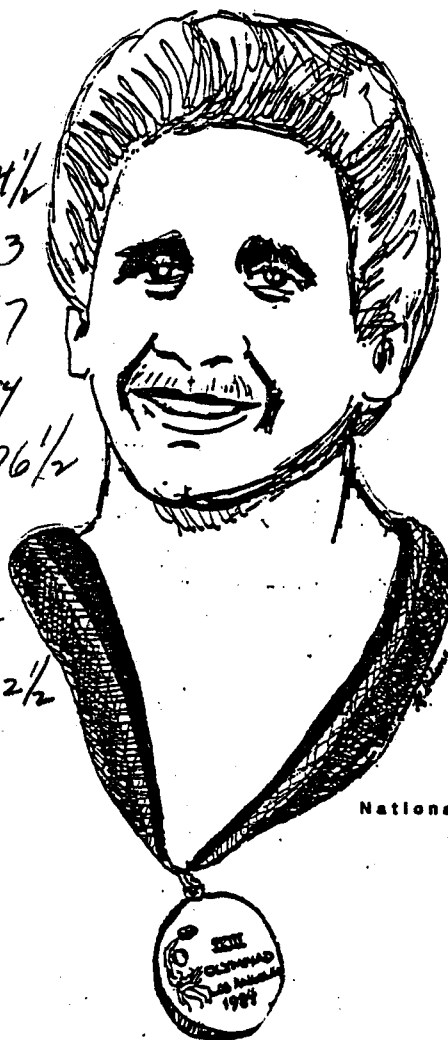 4½
3
7
4
06½
2½
Nationa
XXIII
OLYMPIAD
LOS ANGELES
1984